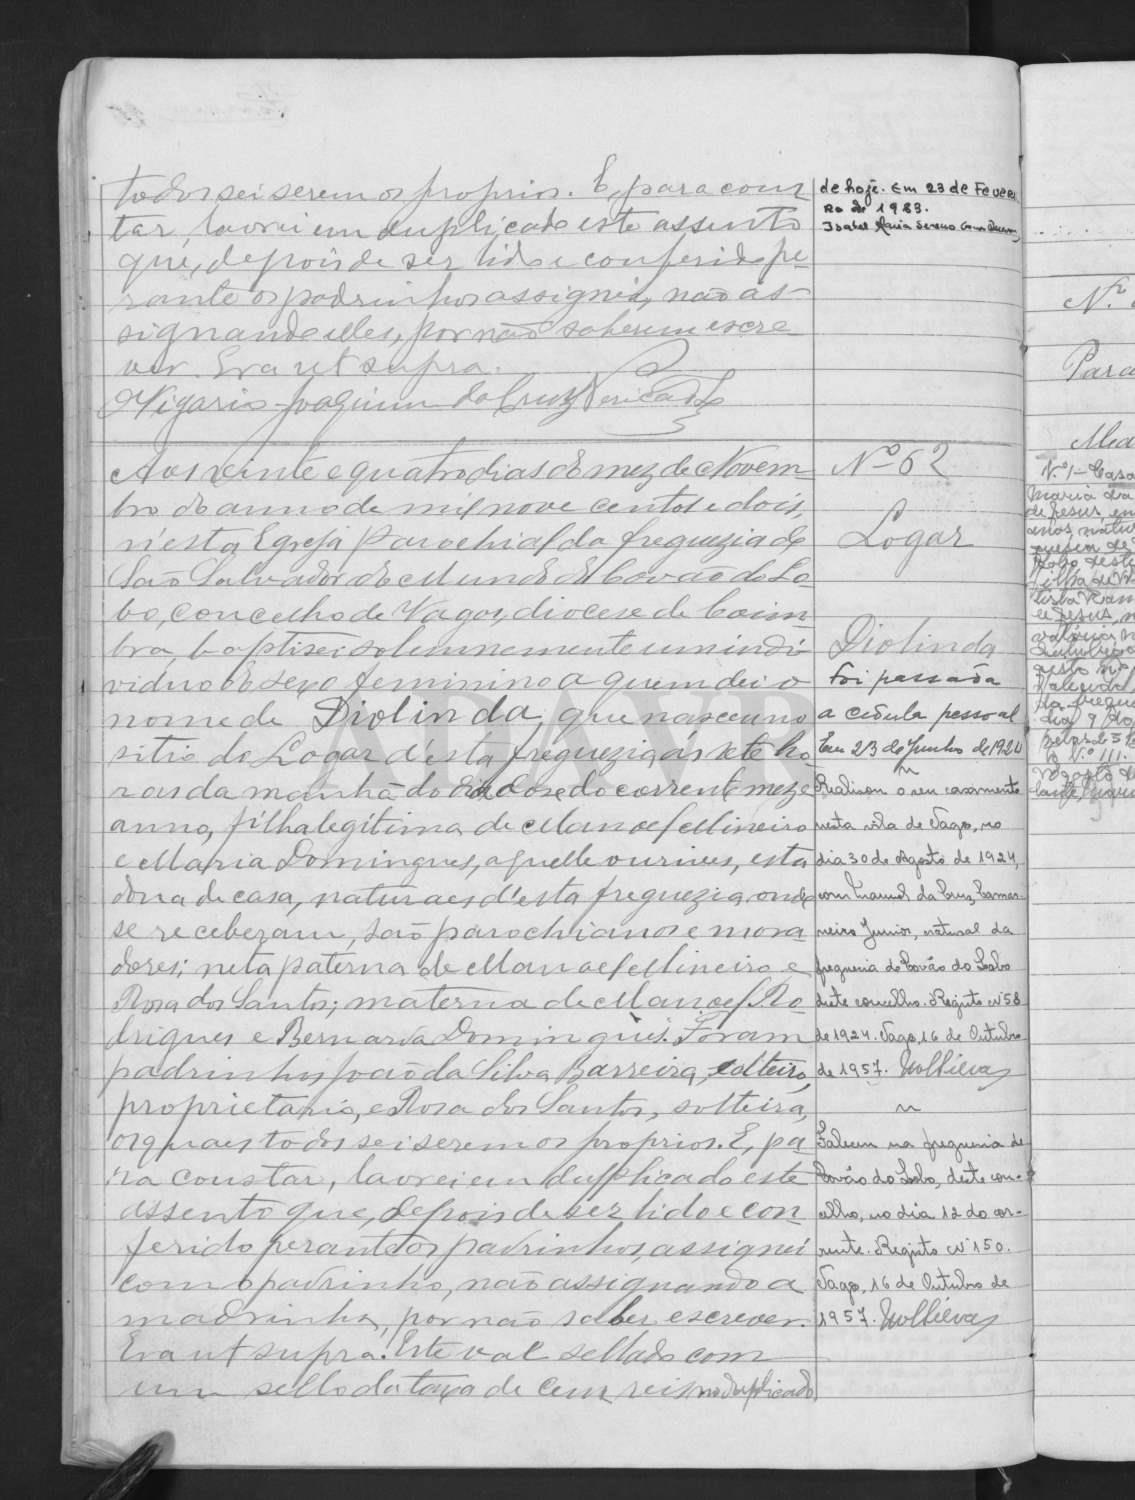 todos sei serem os proprios. E, para cons
tar, lavrei em duplicado este assento
que, depois de ser lido e conferido pe-
rante os padrinhos assignei, não as-
signando elles, por não saberem escre
ver. Era ut supra.
O Vigario Joaquim da Cruz
de hoje. Em 23 de Feverei
ro de 1983.
Isabel Maria
Aos vinte e quatro dias do mez de Novem-
bro do anno de mil nove centos e dois,
n'esta Egreja Parochial da freguezia de
São Salvador do Mundo de Covão do Lo-
bo, concelho de Vagos, diocese de Coim-
bra, baptisei solemnemente um indi-
viduo do sexo feminino a quem dei o
nome de Diolinda, que nasceu no
sitio do Logar d'esta freguezia ás sete ho-
ras da manhã do dia doze do corrente mez e
anno, filha legitima de Manoel Mineiro
e Maria Domingues, aquelle ourives, esta
dona de casa, naturaes d'esta freguezia, onde
se receberam, são parochianos e mora-
dores; neta paterna de Manoel Mineiro e
Rosa dos Santos; materna de Manoel Ro-
drigues e Bernarda Domingues. Foram
padrinhos João da Silva Barreira, solteiro,
proprietario, e Rosa dos Santos, solteira,
os quaes todos sei serem os proprios. E, pa-
ra constar, lavrei em duplicado este
assento que, depois de ser lido e con-
ferido perante os padrinhos, assignei
com o padrinho, não assignando a
madrinha, por não saber escrever.
Era ut supra. Este val sellado com
um sello da taxa de cem reis no duplicado
Nº 62
Logar
Diolinda
Foi passada
a cedula pessoal
Em 23 de Junho de 1924
Realizou o seu casamento
nesta vila de Vagos, no
dia 30 de Agosto de 1924,
com Manuel da Cruz
Junior, natural da
freguesia de Covão do Lobo
deste concelho. Registo nº 58
de 1924. Vagos, 16 de Outubro
de 1957.
Faleceu na freguesia de
Covão do Lobo, deste con-
celho, no dia 12 do cor-
rente. Registo nº 150.
Vagos, 16 de Outubro de
1957.
Nº
Para
Nº 1 - Casa
Maria da
de Jesus, em
ADAVR